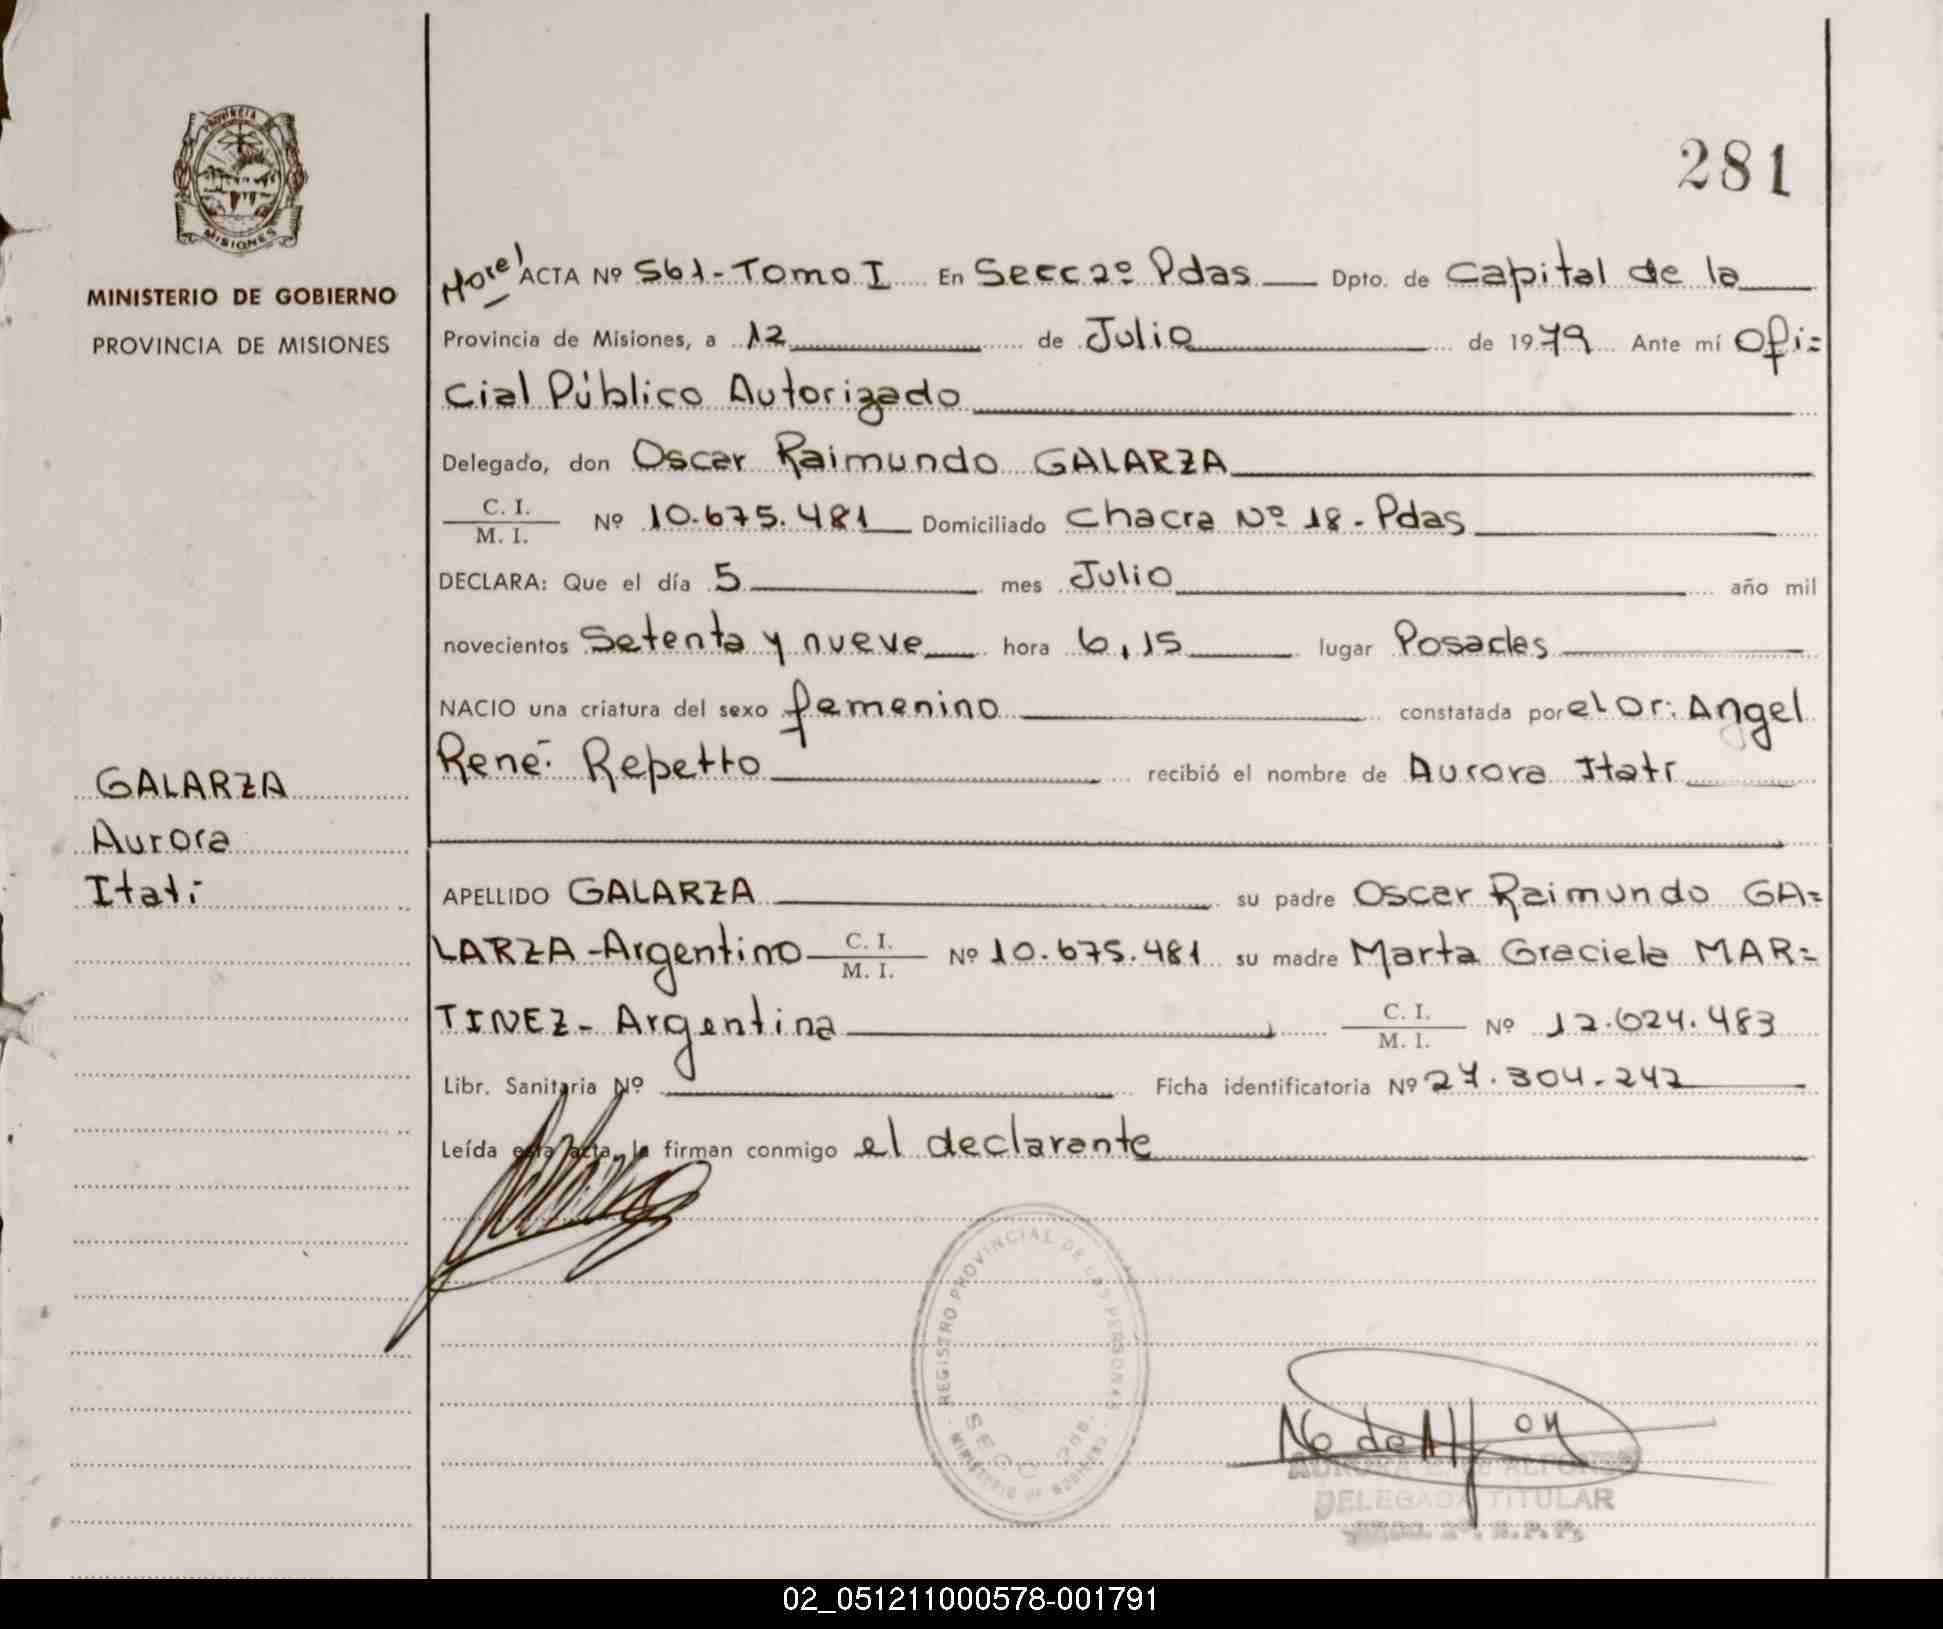 PROVINCIA DE
MISIONES
MINISTERIO DE GOBIERNO
PROVINCIA DE MISIONES
281
ACTA Nº 561-Tomo I En Secc 2º Pdas Dpto. de Capital de la
Provincia de Misiones, a 12 de Julio de 1979 Ante mí Ofi=
cial Público Autorizado
Delegado, don Oscar Raimundo GALARZA
C. I.
M. I. Nº 10.675.481 Domiciliado Chacra Nº 18 - Pdas
DECLARA: Que el día 5 mes Julio año mil
novecientos Setenta y nueve hora 6,15 lugar Posadas
NACIO una criatura del sexo femenino constatada por el Dr: Angel
René Repetto recibió el nombre de Aurora Itatí
GALARZA
Aurora
Itatí
APELLIDO GALARZA su padre Oscar Raimundo GA=
LARZA-Argentino C. I. M. I. Nº 10.675.481 su madre Marta Graciela MAR=
TINEZ - Argentina C. I. M. I. Nº 12.624.483
Libr. Sanitaria Nº Ficha identificatoria Nº 27.304.242
Leída esta acta, la firman conmigo el declarante
REGISTRO PROVINCIAL DE LAS PERSONAS
SECC. 2da.
MINISTERIO DE GOBIERNO
de ALFONSO
DELEGADA TITULAR
02_051211000578-001791